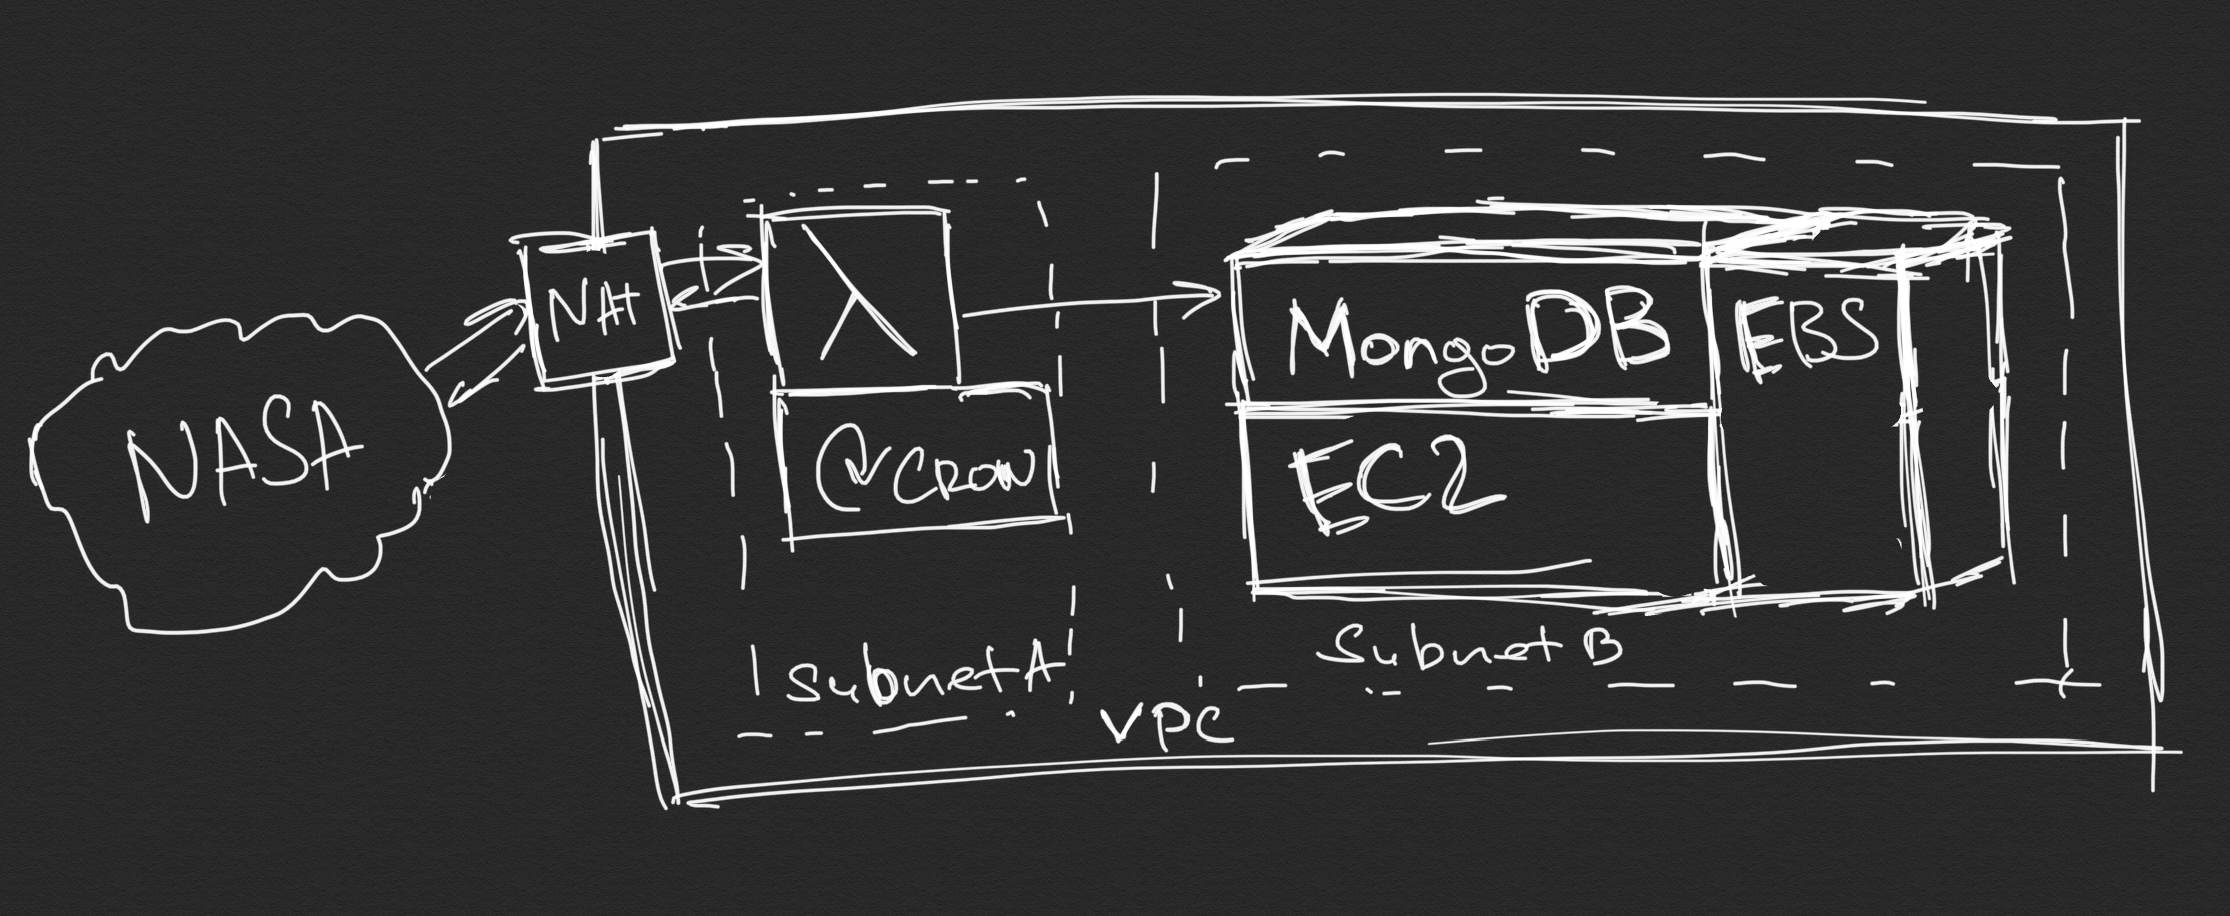 NASA
NAT
λ
@CRON
Subnet A
MongoDB
EBS
EC2
Subnet B
VPC